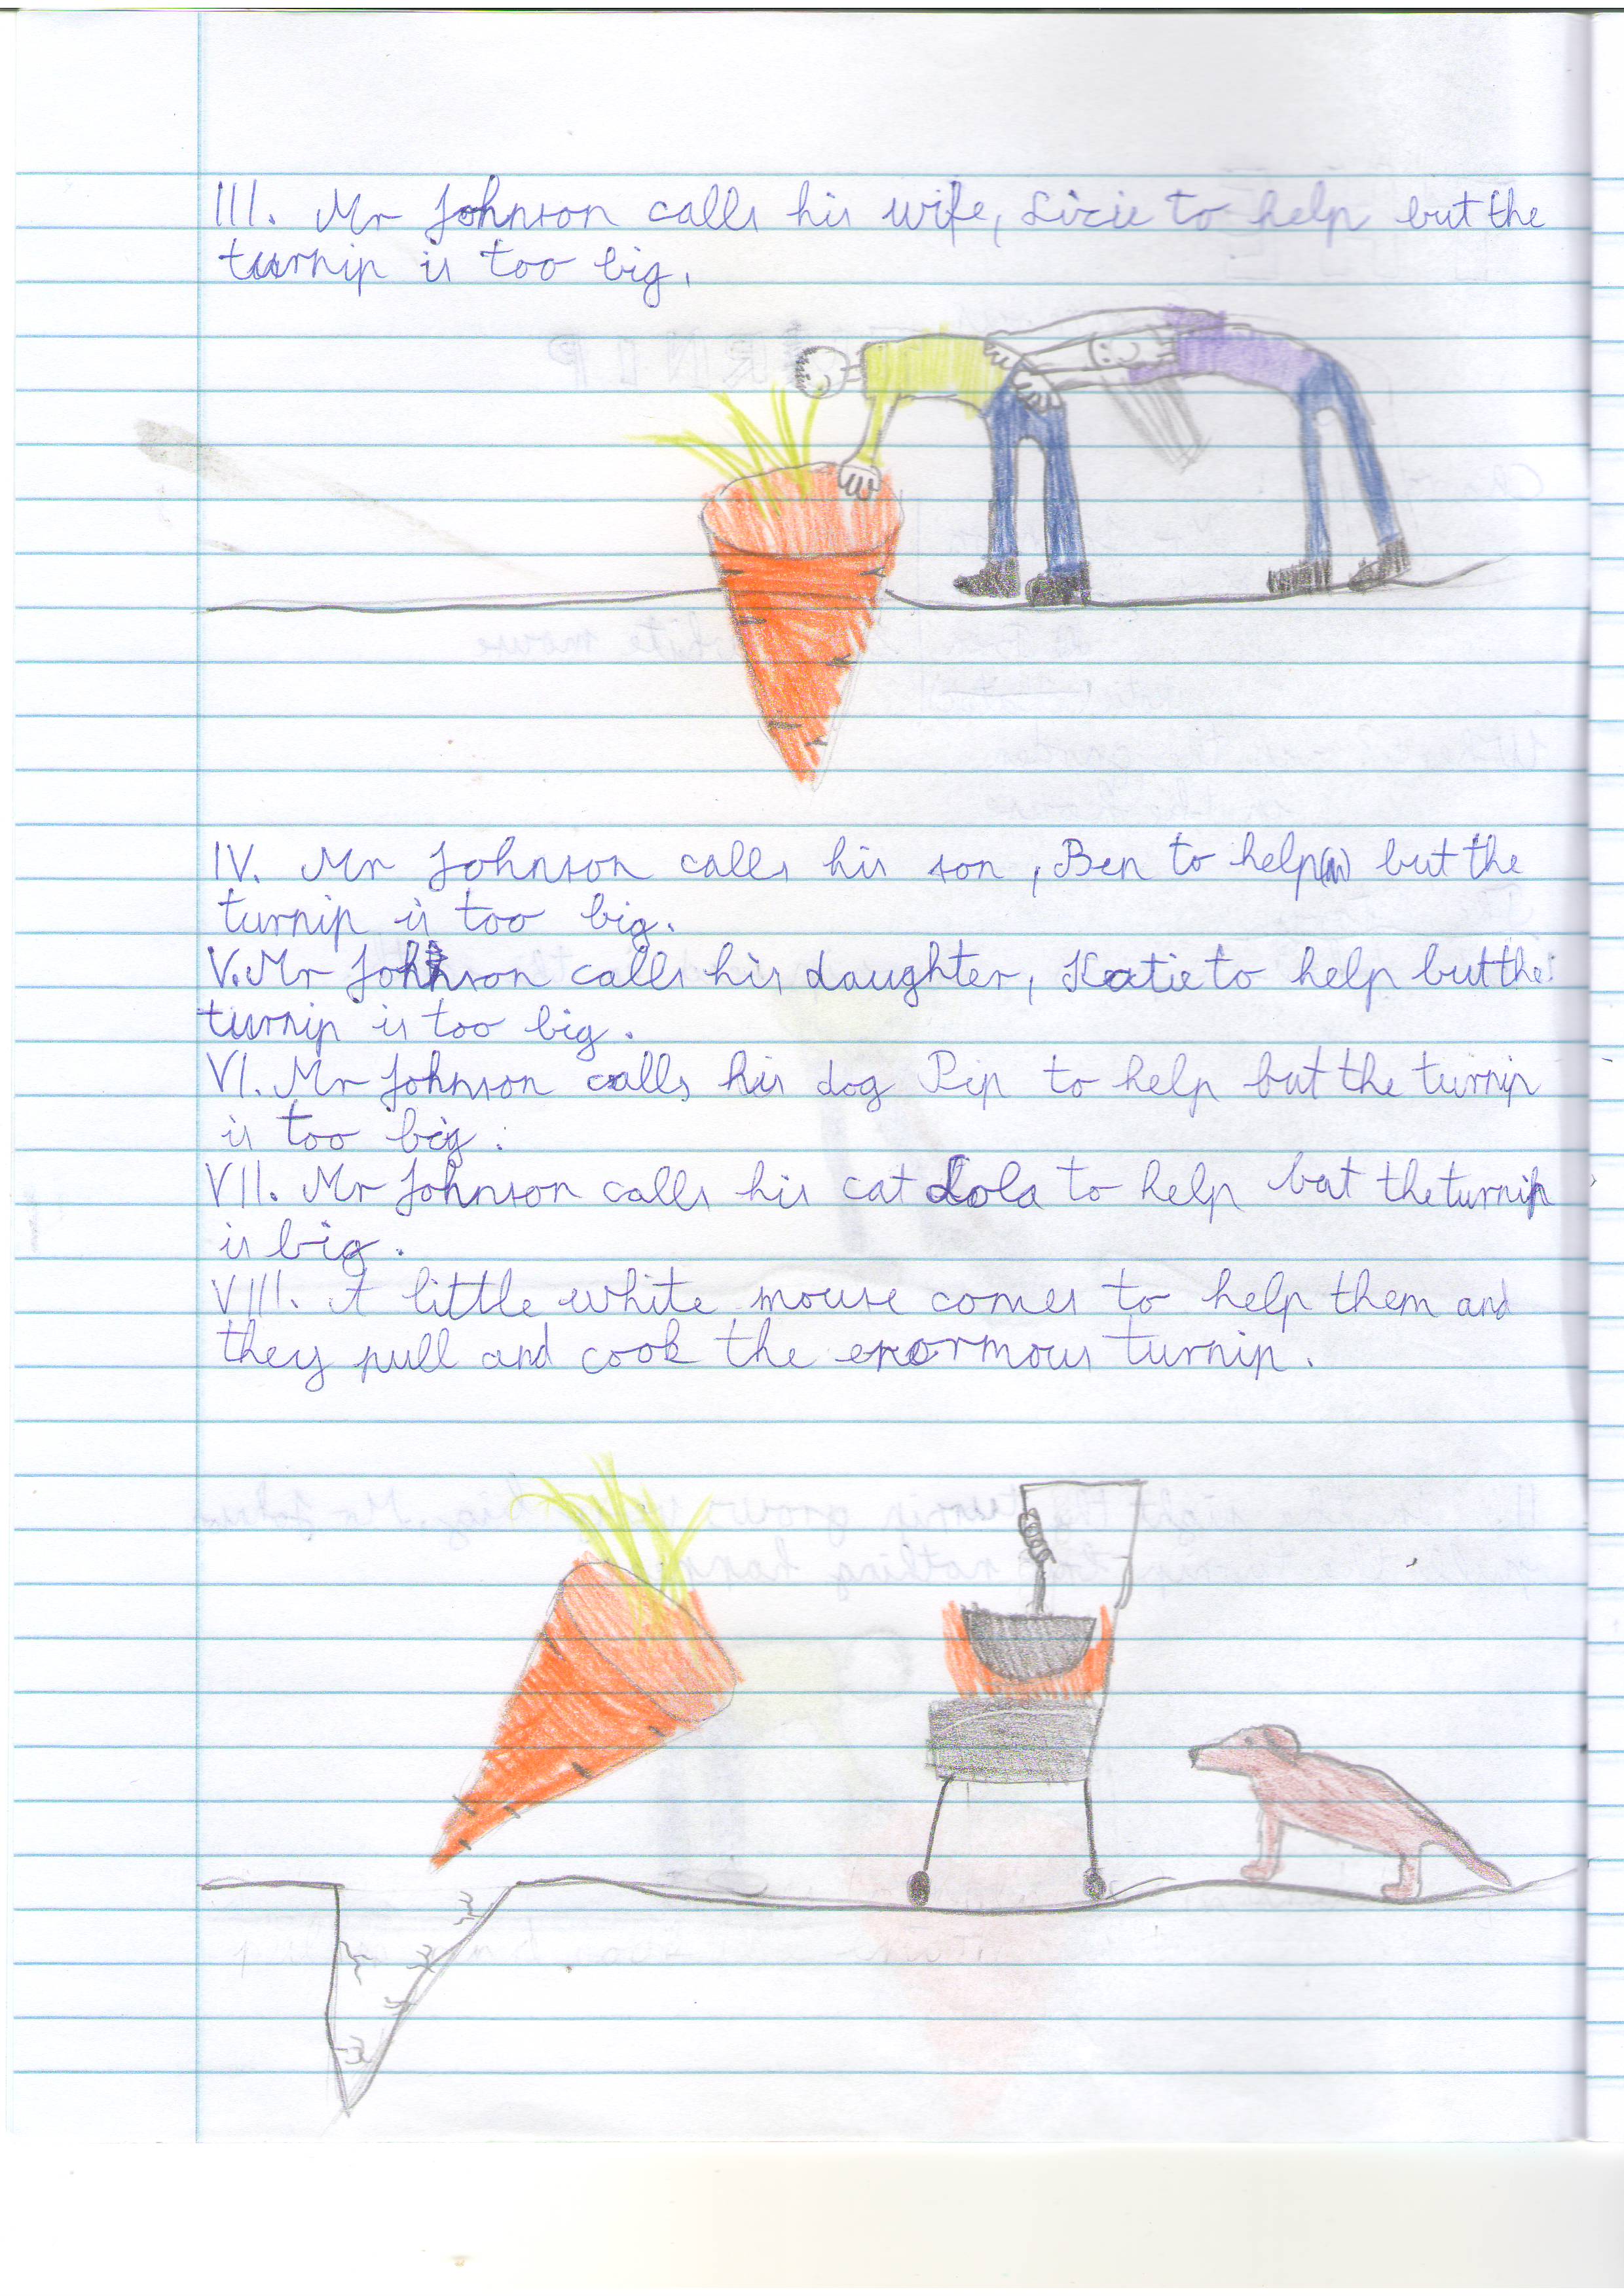 III. Mr Johnson calls his wife, Lizie to help but the
turnip is too big.
IV. Mr Johnson calls his son, Ben to help(n) but the
turnip is too big.
V. Mr Johnson calls his daughter, Katie to help but the
turnip is too big.
VI. Mr Johnson calls his dog Pip to help but the turnip
is too big.
VII. Mr Johnson calls his cat Lola to help but the turnip
is big.
VIII. A little white mouse comes to help them and
they pull and cook the enormous turnip.